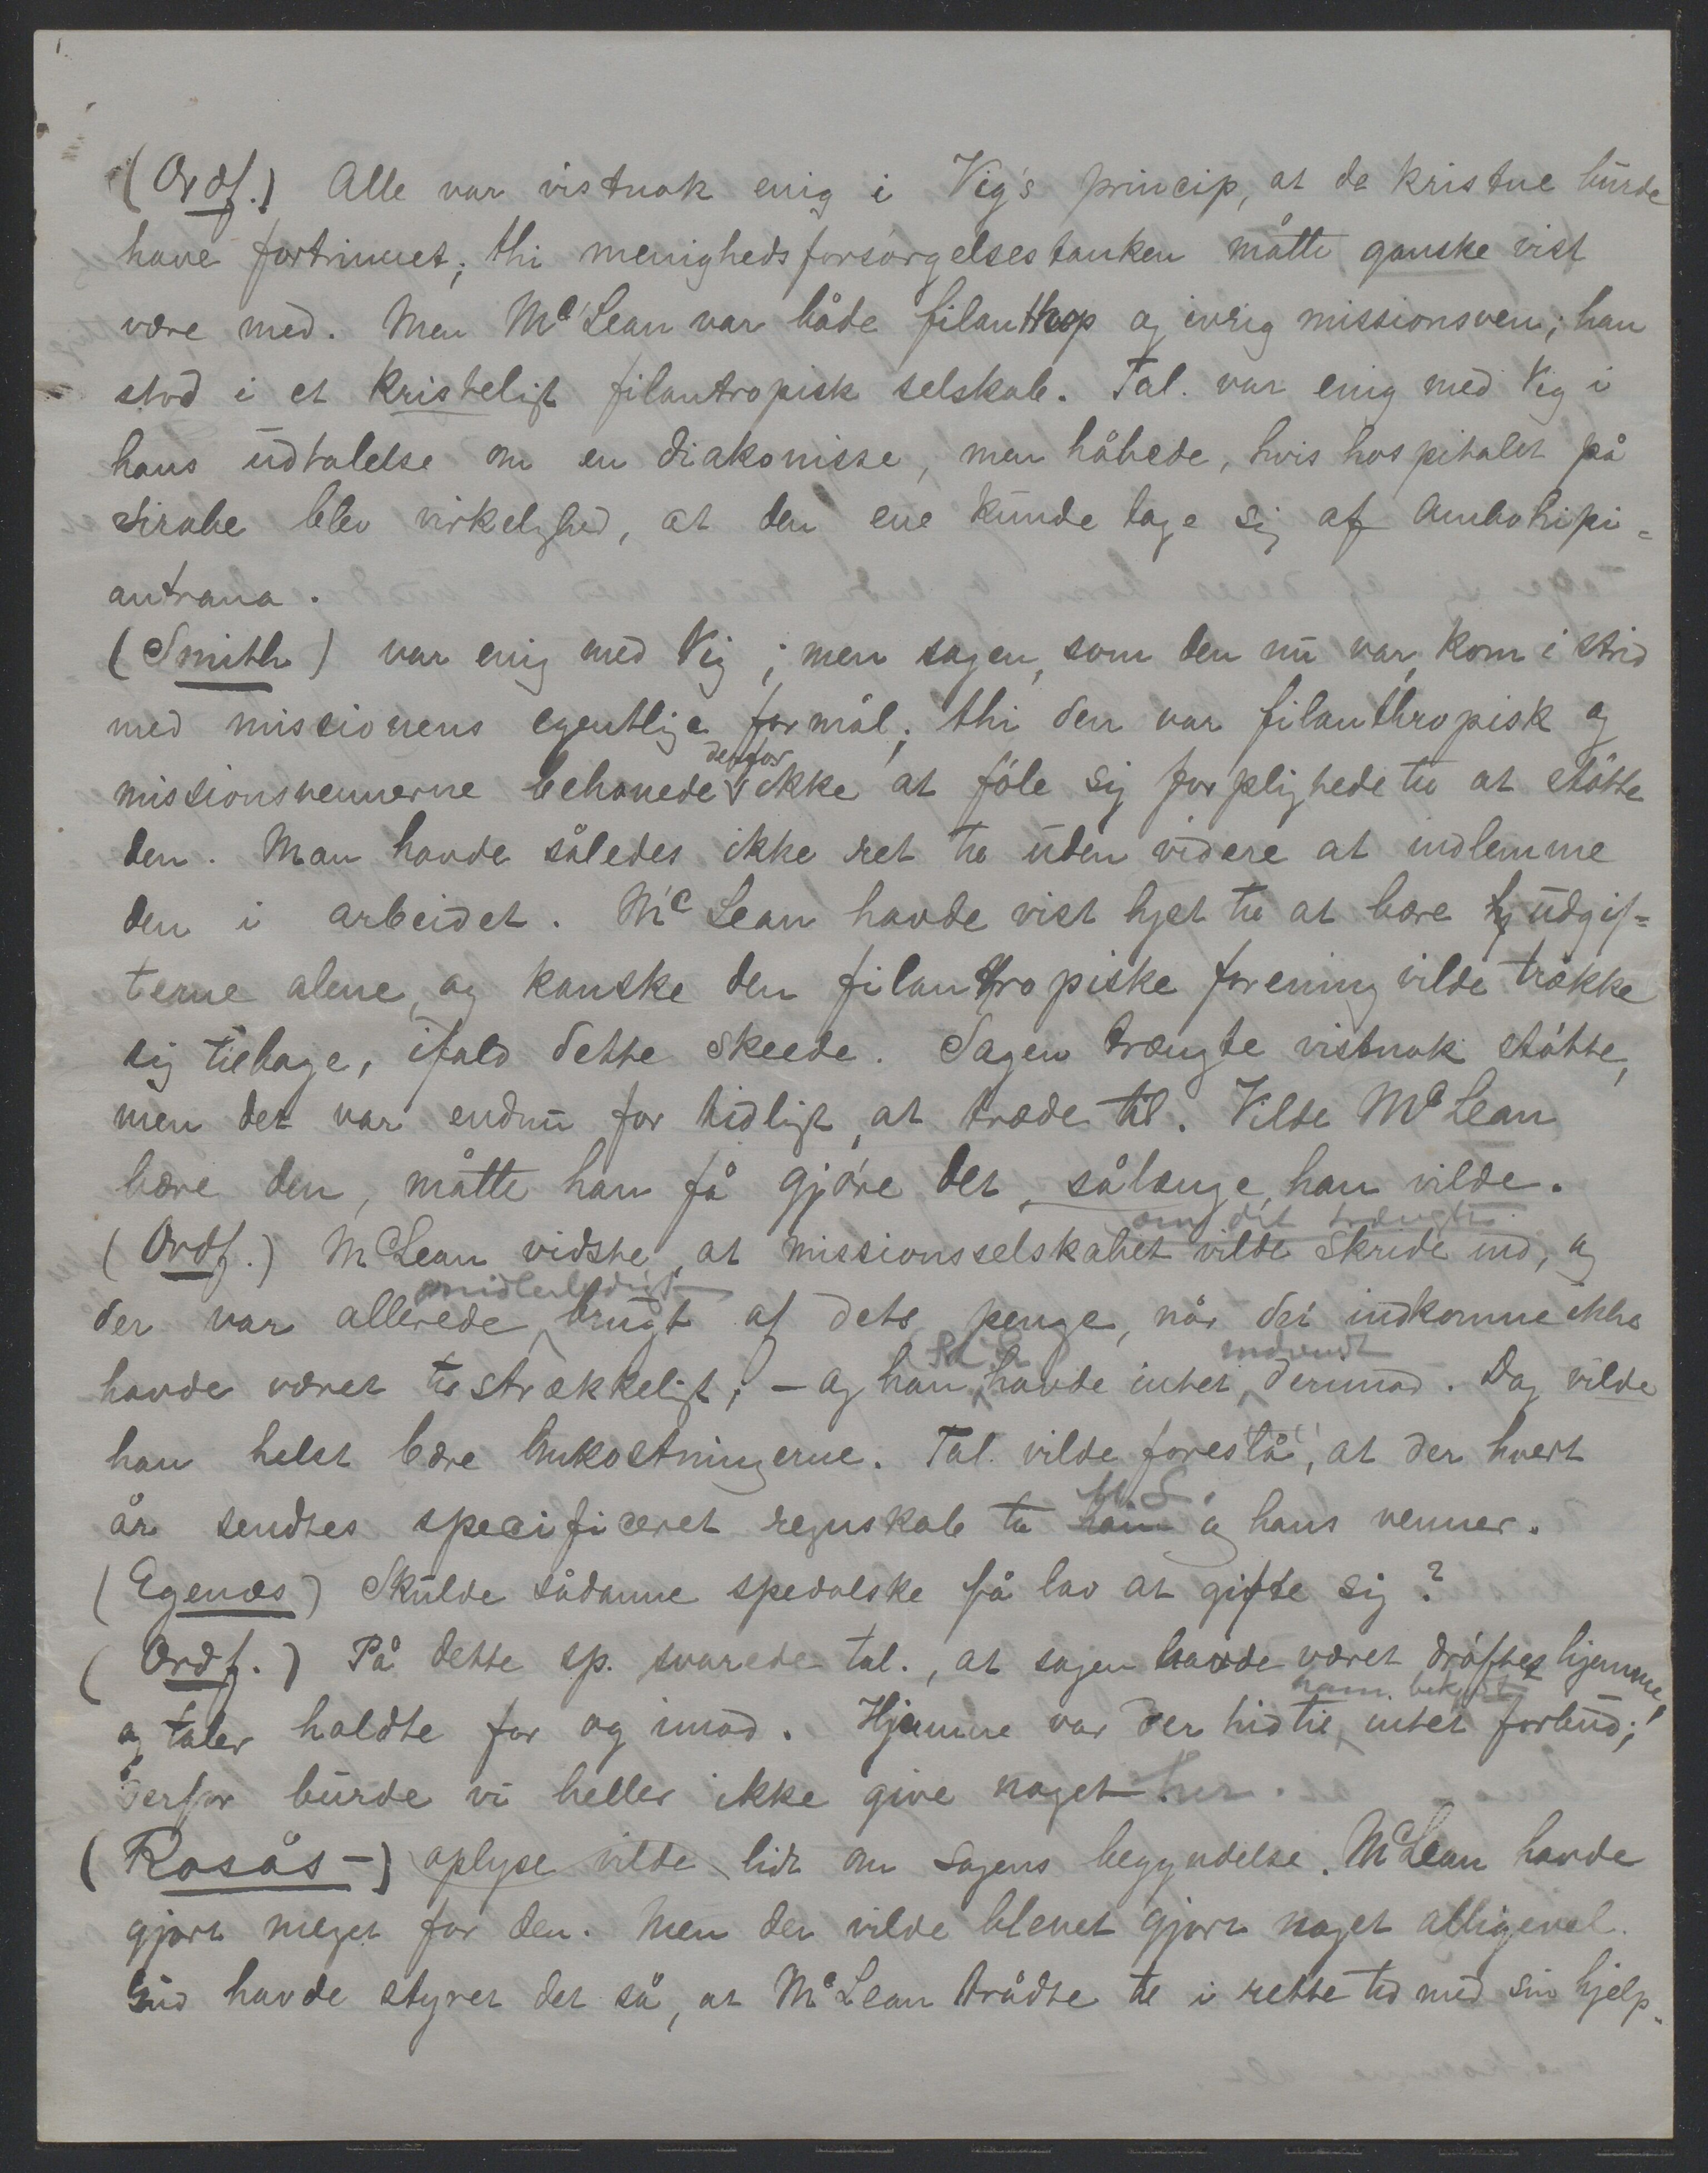 (Ordf.) Alle var vistnok enig i Vig's princip, at de kristne burde
have fortrinnet; thi menighedsforsørgelsestanken måtte ganske vist
være med. Men Mc Lean var både filanthrop og ivrig missionsven; han
stod i et kristeligt filantropisk selskab. Tal. var enig med Vig i
hans udtalelse om en diakonisse, men håbede, hvis hospitalet på
Sirabe blev virkelighed, at den ene kunde tage sig af Ambohipi=
antrana.
(Smith) var enig med Vig; men sagen, som den nu var, kom i strid
med missionens egentlige formål; thi den var filanthropisk og
missionsvennerne behøvede derfor ikke at føle sig forpligtede til at støtte
den. Man havde således ikke ret til uden videre at indlemme
den i arbeidet. Mc Lean havde vist lyst til at bære udgif=
terne alene, og kanske den filantropiske forening vilde trække
sig tilbage, ifald dette skeede. Sagen trængte vistnok støtte,
men det var endnu for tidligt, at træde til. Vilde Mc Lean
bære den, måtte han få gjøre det, sålænge han vilde.
(Ordf.) Mc Lean vidste, at missionsselskabet vilde skride ind, om det trængtes, og
der var allerede midlertidigt brugt af dets penge, når det indkomne ikke
havde været tilstrækkeligt; – og han havde intet indvendt derimod. Dog vilde
han helst bære omkostningerne. Tal. vilde foreslå, at der hvert
år sendtes specificeret regnskab til M. S. og hans venner.
(Egenæs) Skulde sådanne spedalske få lov at gifte sig?
(Ordf.) På dette sp. svarede tal., at sagen havde været drøftet hjemme,
og taler holdte for og imod. Hjemme var der hidtil intet forbud;
derfor burde vi heller ikke give noget her.
(Rosås –) oplyse vilde lidt om sagens begyndelse. Mc Lean havde
gjort meget for den. Men der vilde blevet gjort noget alligevel.
Gud havde styret det så, at Mc Lean trådte til i rette tid med sin hjelp.